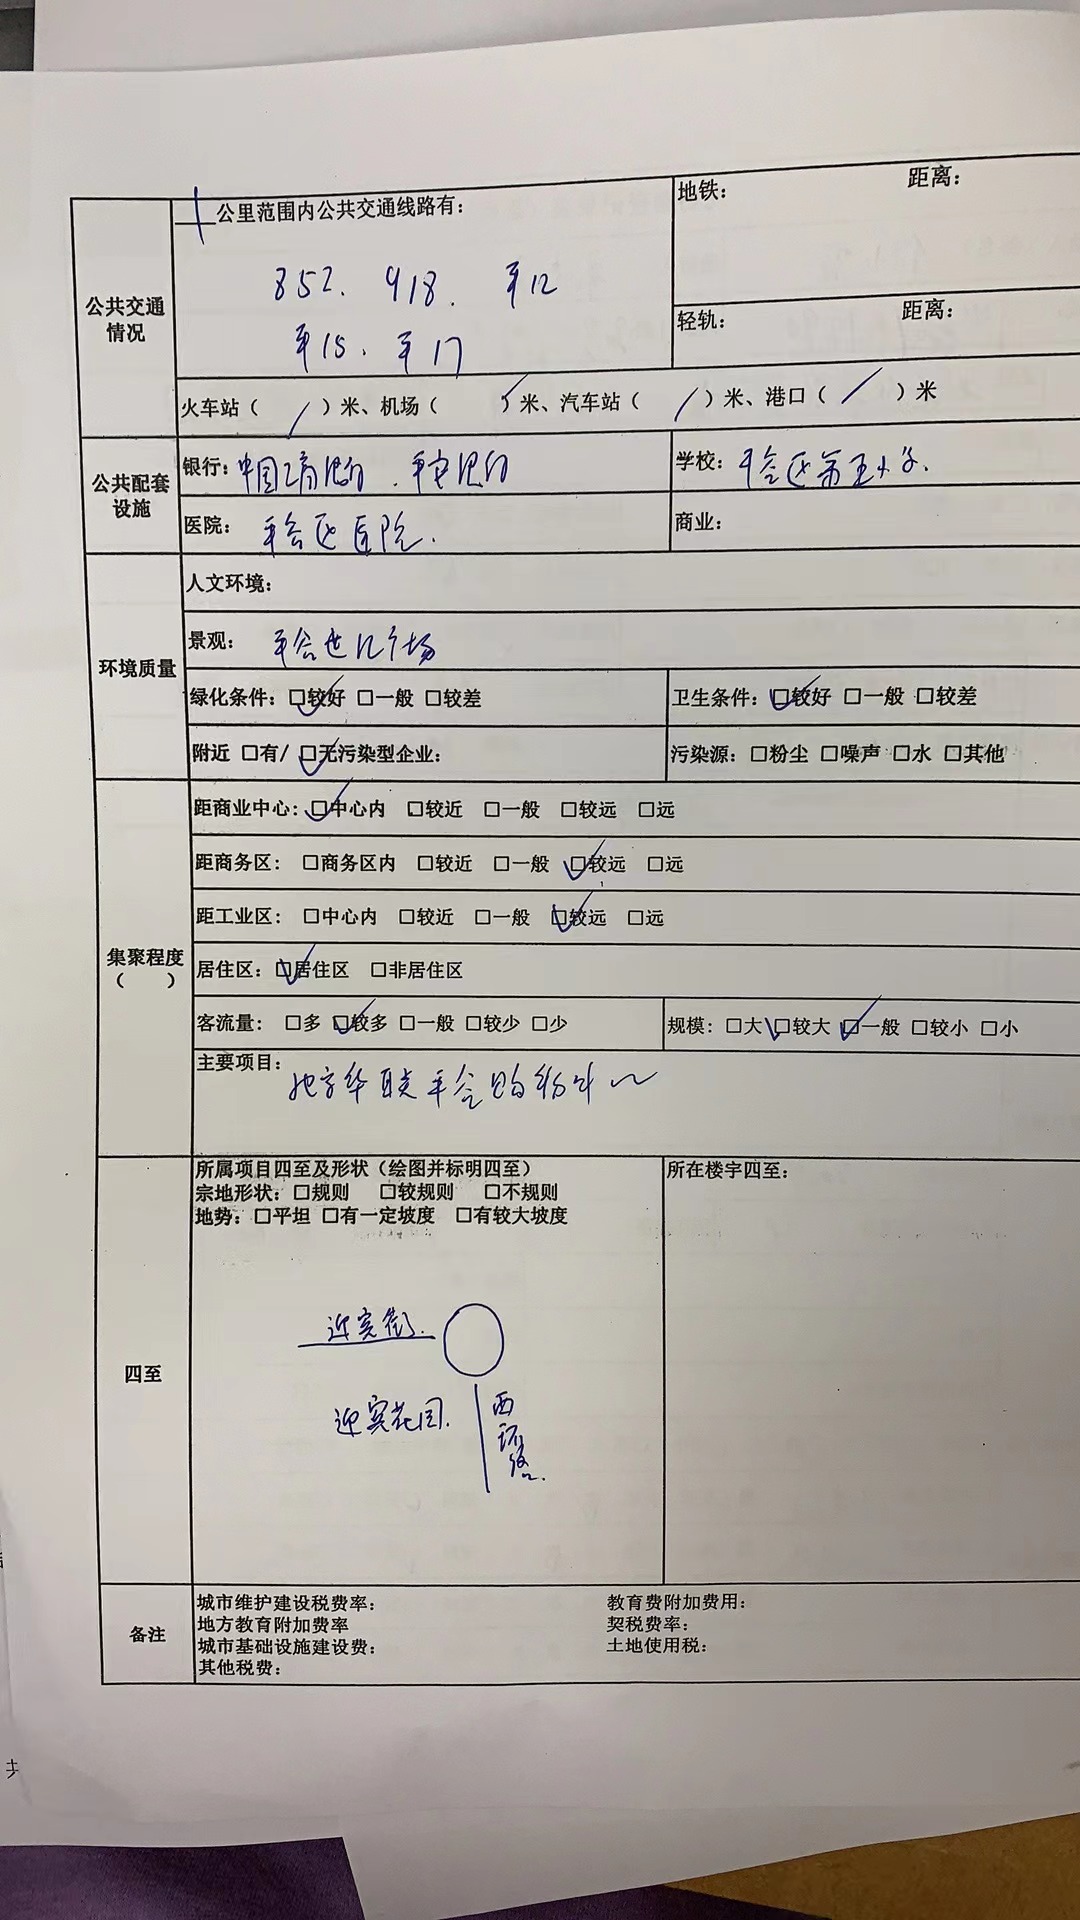 公共交通情况
公里范围内公共交通线路有：
852. 918. 平12
平15. 平17
地铁： 距离：
轻轨： 距离：
火车站（ / ）米、机场（ ）米、汽车站（ / ）米、港口（ / ）米
公共配套设施
银行：中国工商银行.平安银行
学校：平谷区第五小学.
医院：平谷区医院.
商业：
环境质量
人文环境：
景观：平谷世纪广场
绿化条件：☑较好 □一般 □较差
卫生条件：☑较好 □一般 □较差
附近 □有/ ☑无污染型企业：
污染源：□粉尘 □噪声 □水 □其他
集聚程度
（ ）
距商业中心：☑中心内 □较近 □一般 □较远 □远
距商务区：□商务区内 □较近 □一般 ☑较远 □远
距工业区：□中心内 □较近 □一般 ☑较远 □远
居住区：☑居住区 □非居住区
客流量：□多 ☑较多 □一般 □较少 □少
规模：□大 ☑较大 ☑一般 □较小 □小
主要项目：
北京华联平谷购物中心
四至
所属项目四至及形状（绘图并标明四至）
宗地形状：□规则 □较规则 □不规则
地势：□平坦 □有一定坡度 □有较大坡度
所在楼宇四至：
迎宾街.
迎宾花园.
西环路.
备注
城市维护建设税费率： 教育费附加费用：
地方教育附加费率 契税费率：
城市基础设施建设费： 土地使用税：
其他税费：